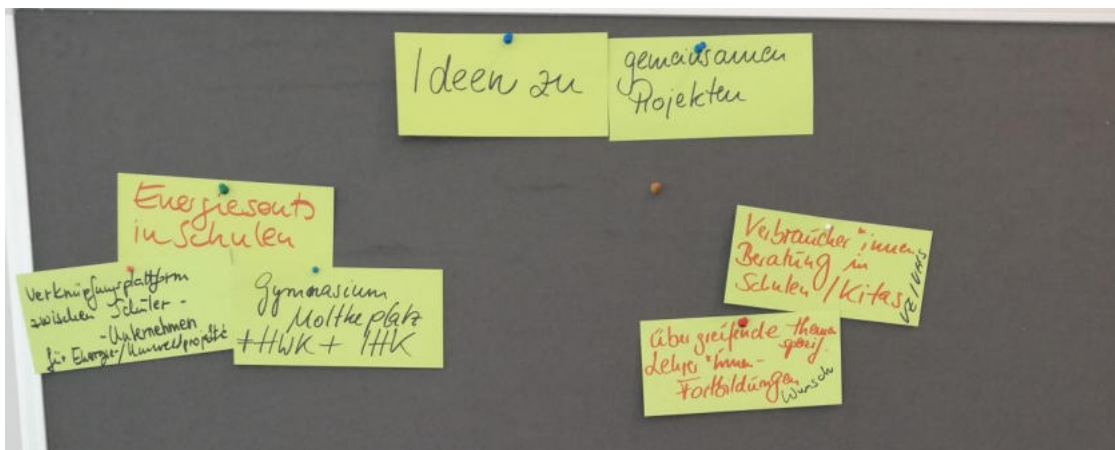 Ideen zu
gemeinsamen
Projekten
Energiescouts
in Schulen
Verknüpfungsplattform
zwischen Schüler -
- Unternehmen
für Energie/Umweltprojekte
Gymnasium
Moltkeplatz
+ HWK + IHK
Verbraucher*innen
Beratung in
Schulen / Kitas
VZ / VHS
übergreifende thema
spezif.
Lehrer*innen-
Fortbildungen
Wunsch